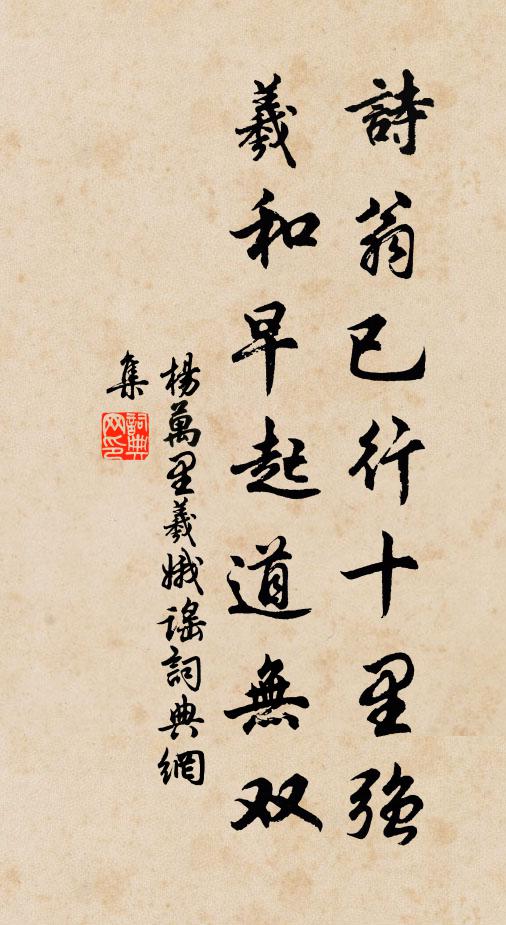 詩翁已行十里强
羲和早起道無双
楊萬里羲娥謠詞典網
集
詞典
网印